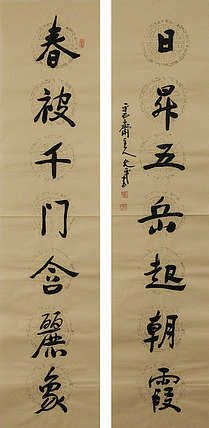 日昇五岳起朝霞
春被千门含丽象